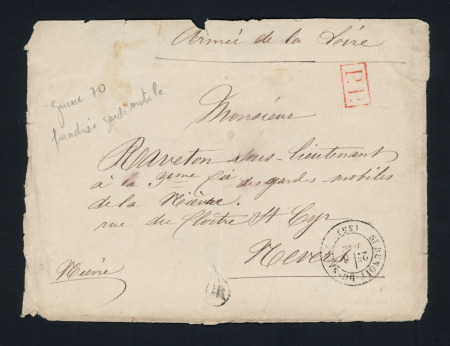 Armée de la Loire
P.P.
Guerre 70
franchise garde mobile
Monsieur
Raveton sous-lieutenant
à la 3eme Cie des gardes mobiles
de la Nièvre.
rue du Cloître St Cyr
Nevers
Nièvre
OR